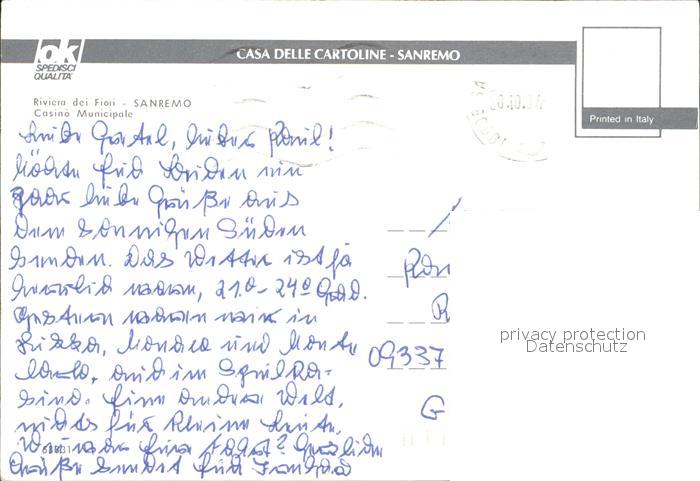 ok
SPEDISCI
QUALITA'
CASA DELLE CARTOLINE - SANREMO
Riviera dei Fiori - SANREMO
Casinò Municipale
Printed in Italy
Liebe Gretel, lieber Paul!
Möchte Euch beiden ein
paar liebe Grüße aus
dem sonnigen Süden
senden. Das Wetter ist ja
herrlich warm, 21.0 - 24º Grad.
Gestern waren wir in
Nizza, Monaco und Monte
Carlo, auch im Spielka-
sino. Eine andere Welt,
nichts für kleine Leute.
Herzliche
Grüße sendet Euch
09337
R
G
privacy protection
Datenschutz